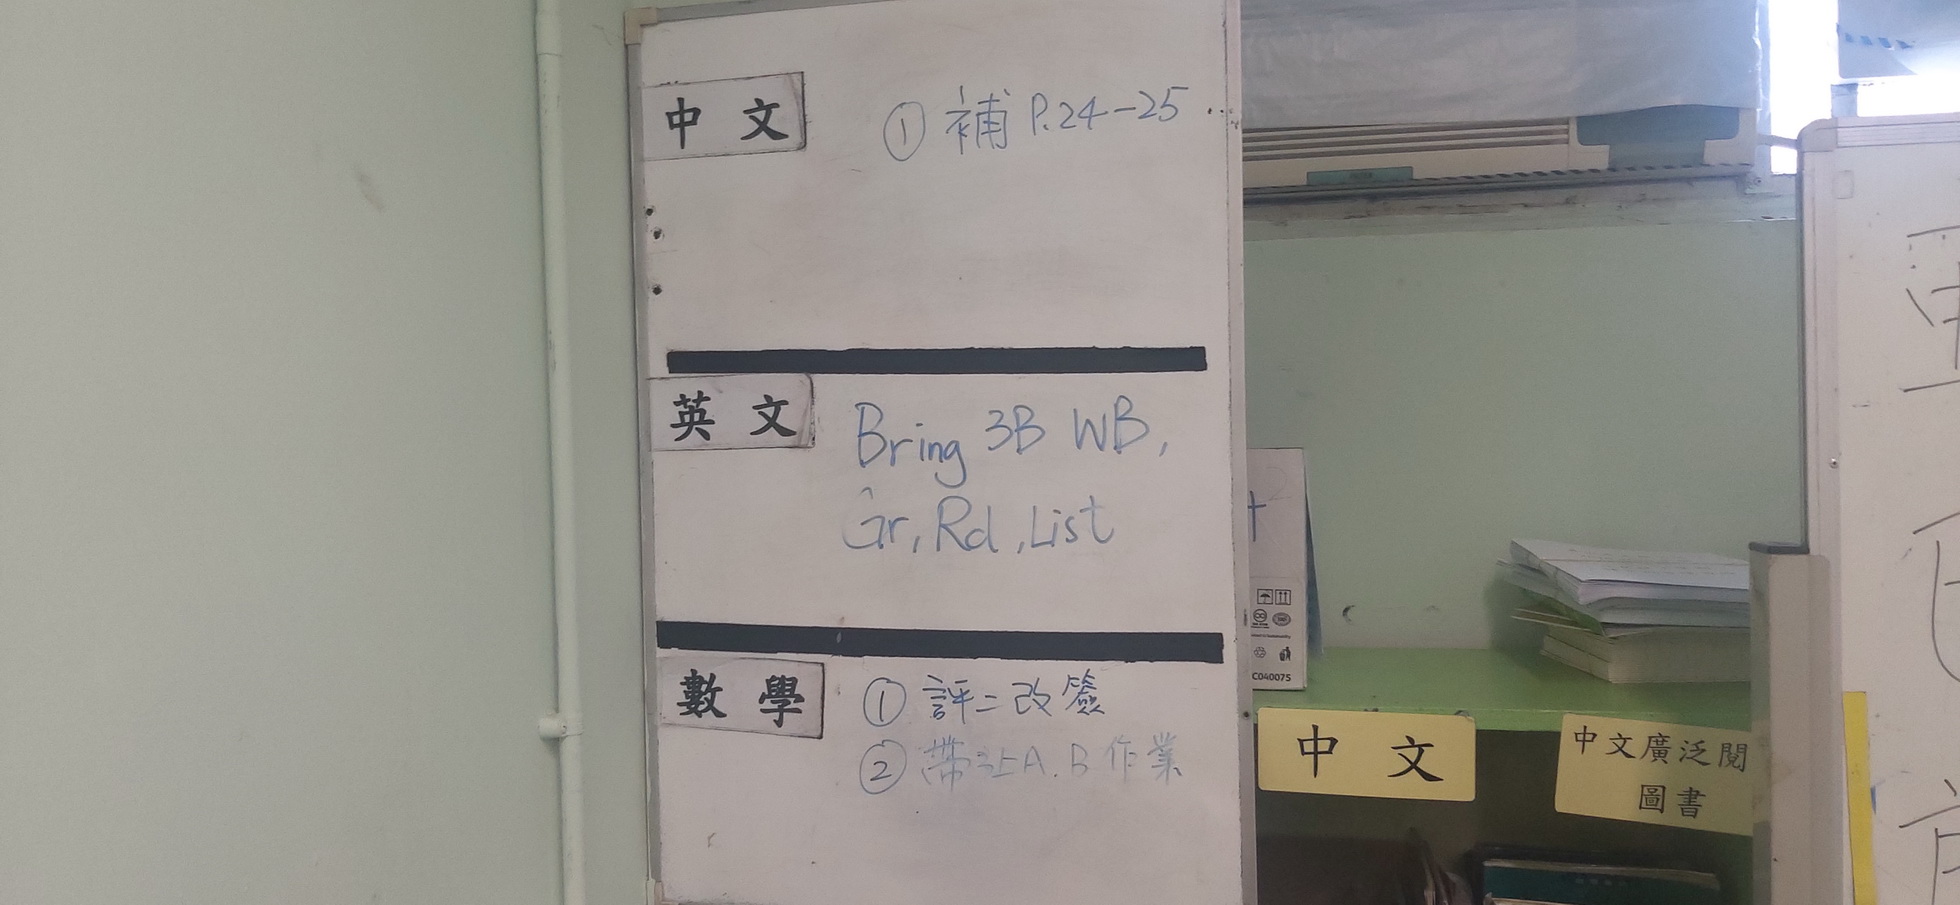 中 文
① 補 P.24-25
英 文
Bring 3B WB,
Gr, Rd, List
數 學
① 評二改簽
② 帶 A.B 作業
C040075
中 文
中文廣泛閱
圖書